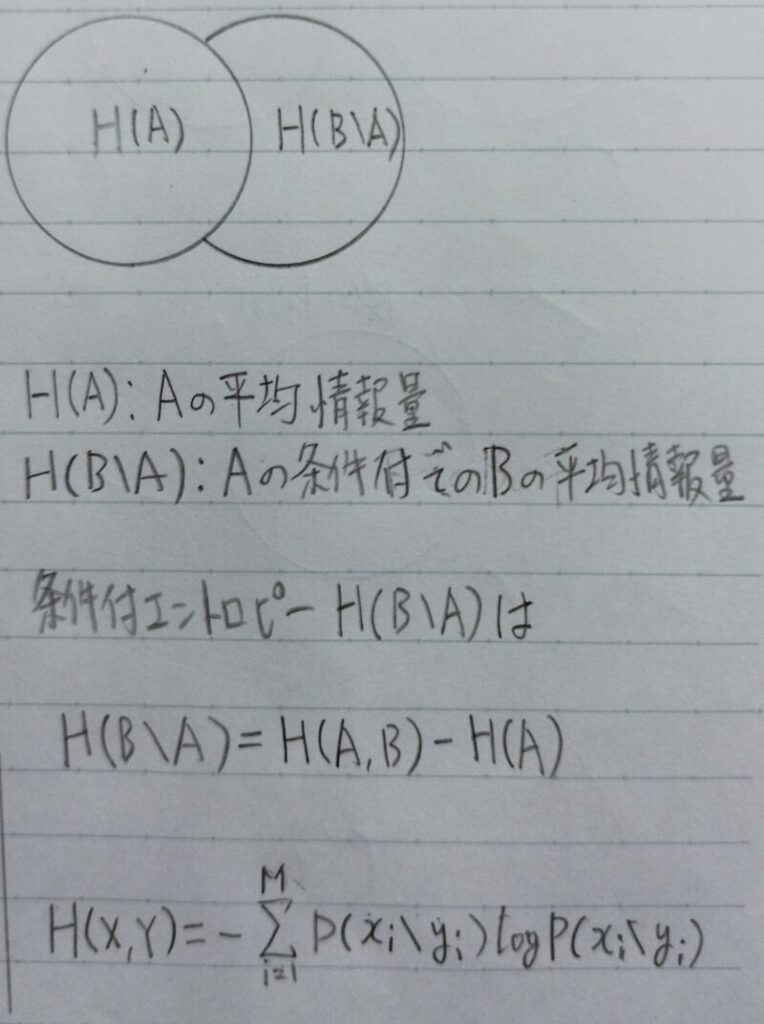 H(A) H(B\A)
H(A): Aの平均情報量
H(B\A): Aの条件付でのBの平均情報量
条件付エントロピー H(B\A)は
H(B\A)=H(A,B)-H(A)
H(X,Y)=-∑_{i=1}^{M} P(x_i\y_i)logP(x_i\y_i)